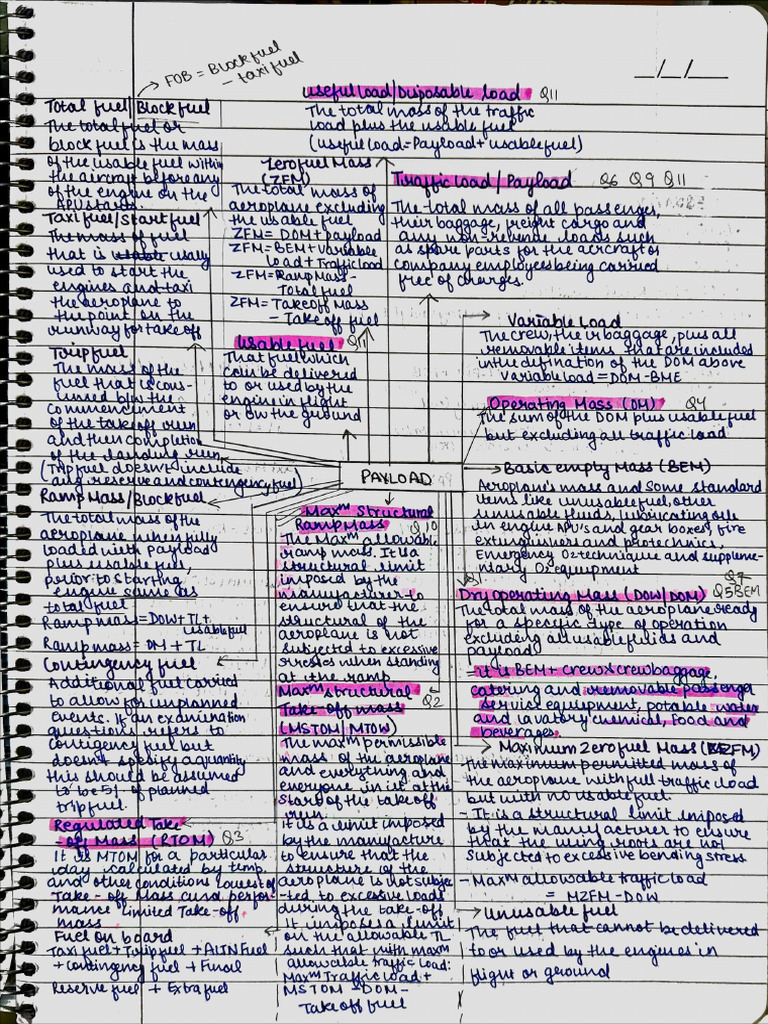 FOB = Block fuel
- taxi fuel
Total fuel/Block fuel
The total fuel or
block fuel is the mass
of the usable fuel within
the aircraft before any
of the engine on the
APU starts.
Taxi fuel/Start fuel
The mass of fuel
that is usally
used to start the
engines and taxi
the aeroplane to
the point on the
runway for take off
Trip fuel
The mass of the
fuel that is con-
sumed b/w the
commencement
of the take off run
and then completion
of the landing run
(Trip fuel doesn't include
any reserve and contengency fuel)
Ramp Mass/Block fuel
The total mass of the
aeroplane when fully
loaded with payload
plus usable fuel,
prior to starting
engine same as
total fuel
Ramp mass = DOW + TL +
usable fuel
Ramp mass = OM + TL
Contingency fuel
Additional fuel carried
to allow for unplanned
events. If an examination
questions refers to
contigency fuel but
doesn't specify a quantity
this should be assumed
to be 5% of planned
trip fuel.
Regulated Take
- off Mass (RTOM) Q3
It is MTOM for a particular
day calculated by temp.
and other conditions lowest of
Take-off Mass and perfor-
mance limited Take-off
mass
Fuel on board
Taxi fuel + Trip fuel + ALTN Fuel
+ Contingency fuel + Final
Reserve fuel + Extra fuel
__/__/__
Useful load/Disposable load Q11
The total mass of the traffic
load plus the usable fuel
(useful load = Payload + usable fuel)
Zero fuel Mass
(ZFM)
The total mass of
aeroplane excluding
the usable fuel
ZFM = DOM + payload
ZFM = BEM + Variable
Load + Traffic load
ZFM = Ramp Mass -
Total fuel
ZFM = Takeoff Mass
- Take off fuel
Usable fuel Q11
That fuel which
can be delivered
to or used by the
engine in flight
or on the ground
Traffic load/Payload Q6 Q9 Q11
The total mass of all passenges,
their baggage, freight cargo and
any non-revenue loads such
as spare parts for the aircraft or
company employees being carried
free of charges.
Variable Load
The crew, their baggage, plus all
removable items that are included
in the defination of the DOM above
Variable load = DOM - BME
Operating Mass (OM) Q4
The sum of the DOM plus usable fuel
but excluding all traffic load
PAYLOAD
Basic empty Mass (BEM)
Aeroplane's mass and some standard
items like unusable fuel, other
unusable fluids, lubricating oils
in engine APU's and gear boxes, fire
extinguishers and protechnics,
Emergency O2 technique and suppleme-
ntary O2 equipment
Q1 Q7
Dry operating Mass (DOW/DOM) Q5 BEM
The total mass of the aeroplane ready
for a specific type of operation
excluding all usable fluids and
payload
= it is BEM + crew & crew baggage,
catering and removable passenger
service equipment, potable water
and lavatory chemical, Food and
beverages.
Maximum Zero fuel Mass (MZFM)
The maximum permitted mass of
the aeroplane with full traffic load
but with no usable fuel.
- It is a structural limit imposed
by the manufacturer to ensure
that the wing roots are not
subjected to excessive bending stress
- Maxm allowable traffic load
= MZFM - DOW
Unusable fuel
The fuel that cannot be delivered
to or used by the engines in
flight or ground
Maxm Structural
Ramp Mass Q10
The Maxm allowable
ramp mass. It is a
structural limit
imposed by the
manufacturer to
ensure that the
structural of the
aeroplane is not
subjected to excessive
stresses when standing
at the ramp
Maxm structural
Take off mass Q2
(MSTOM/MTOW)
The maxm permissible
mass of the aeroplane
and everything and
everyone in it at the
start of the take off
run.
It is a limit imposed
by the manufacture
to ensure that the
structure of the
aeroplane is not subje
-ted to excessive loads
during the take-off
It imposes a limit
on the allowable TL
such that with maxm
allowable traffic load:
Maxm Traffic load +
MSTOM - DOM -
Take off fuel